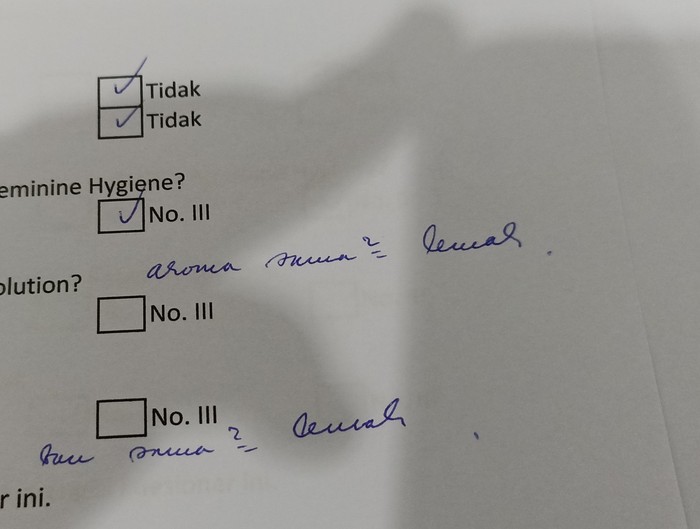 Tidak
Tidak
eminine Hygiene?
No. III
aroma sama2 lemah
olution?
No. III
No. III
bau sama2 lemah
r ini.